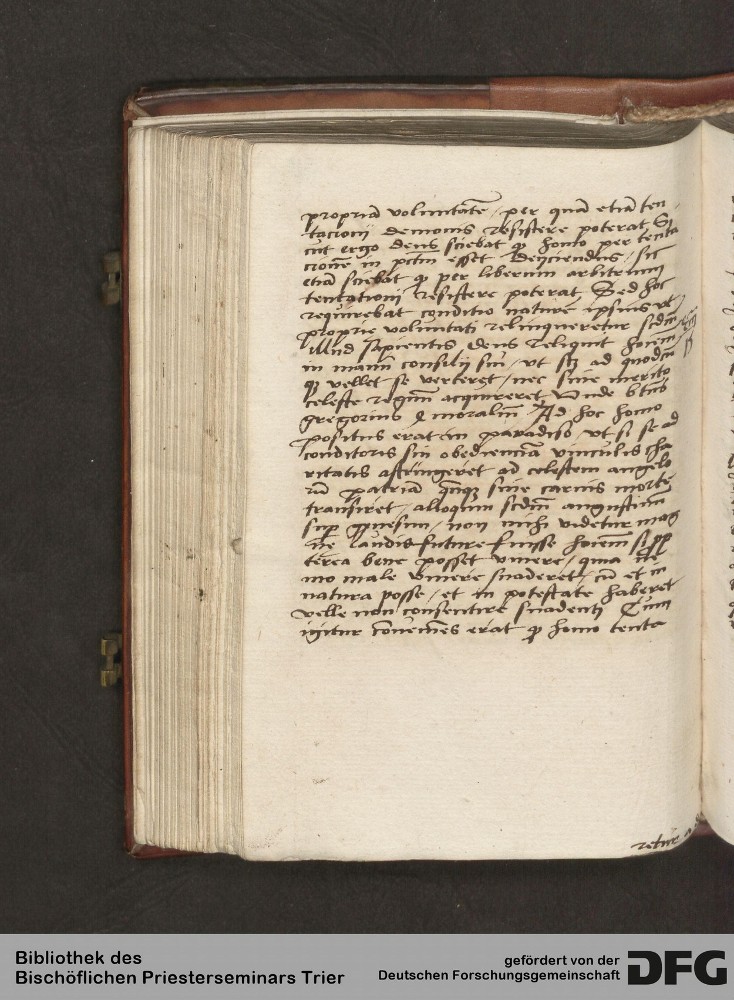 propriā voluntatē, per quā etiā ten
tacionj demonis resistere poterat Si
cut ergo deus sciebat qꝫ homo per tenta
cionē in pctm̄ esset deijciendus, sic
etiā sciebat qꝫ per liberum arbitrium
tentationj resistere poterat Sed hoc
requirebat conditio nature ipsius vt
proprie voluntati relinqueretur scdm̄
illud sapientis deus reliquit hoiem
in manu consilij sui, vt scꝫ ad quodcūqꝫ
vellet se verteret, nec sine merito
celeste regnū acquireret Vnde btūs
gregorius 4 moraliū Ad hoc homo
positus erat in paradiso, vt si se ad
conditoris sui obedienciā vinculis cha
ritatis astringeret ad celestem angelo
rū patriā qn̄qꝫ sine carnis morte
transiret, alioquin scdm̄ augustinū
suꝑ genesim, non michi videtur mag
ne laudis future fuisse hoiem si prop
terea bene posset viuere, quia ne
mo male viuere suaderet, cū et in
natura posse, et in potestate haberet
velle non consentire suadentj Cum
igitur cōueniēs erat qꝫ homo tenta
retur a
Bibliothek des
Bischöflichen Priesterseminars Trier
gefördert von der
Deutschen Forschungsgemeinschaft
DFG